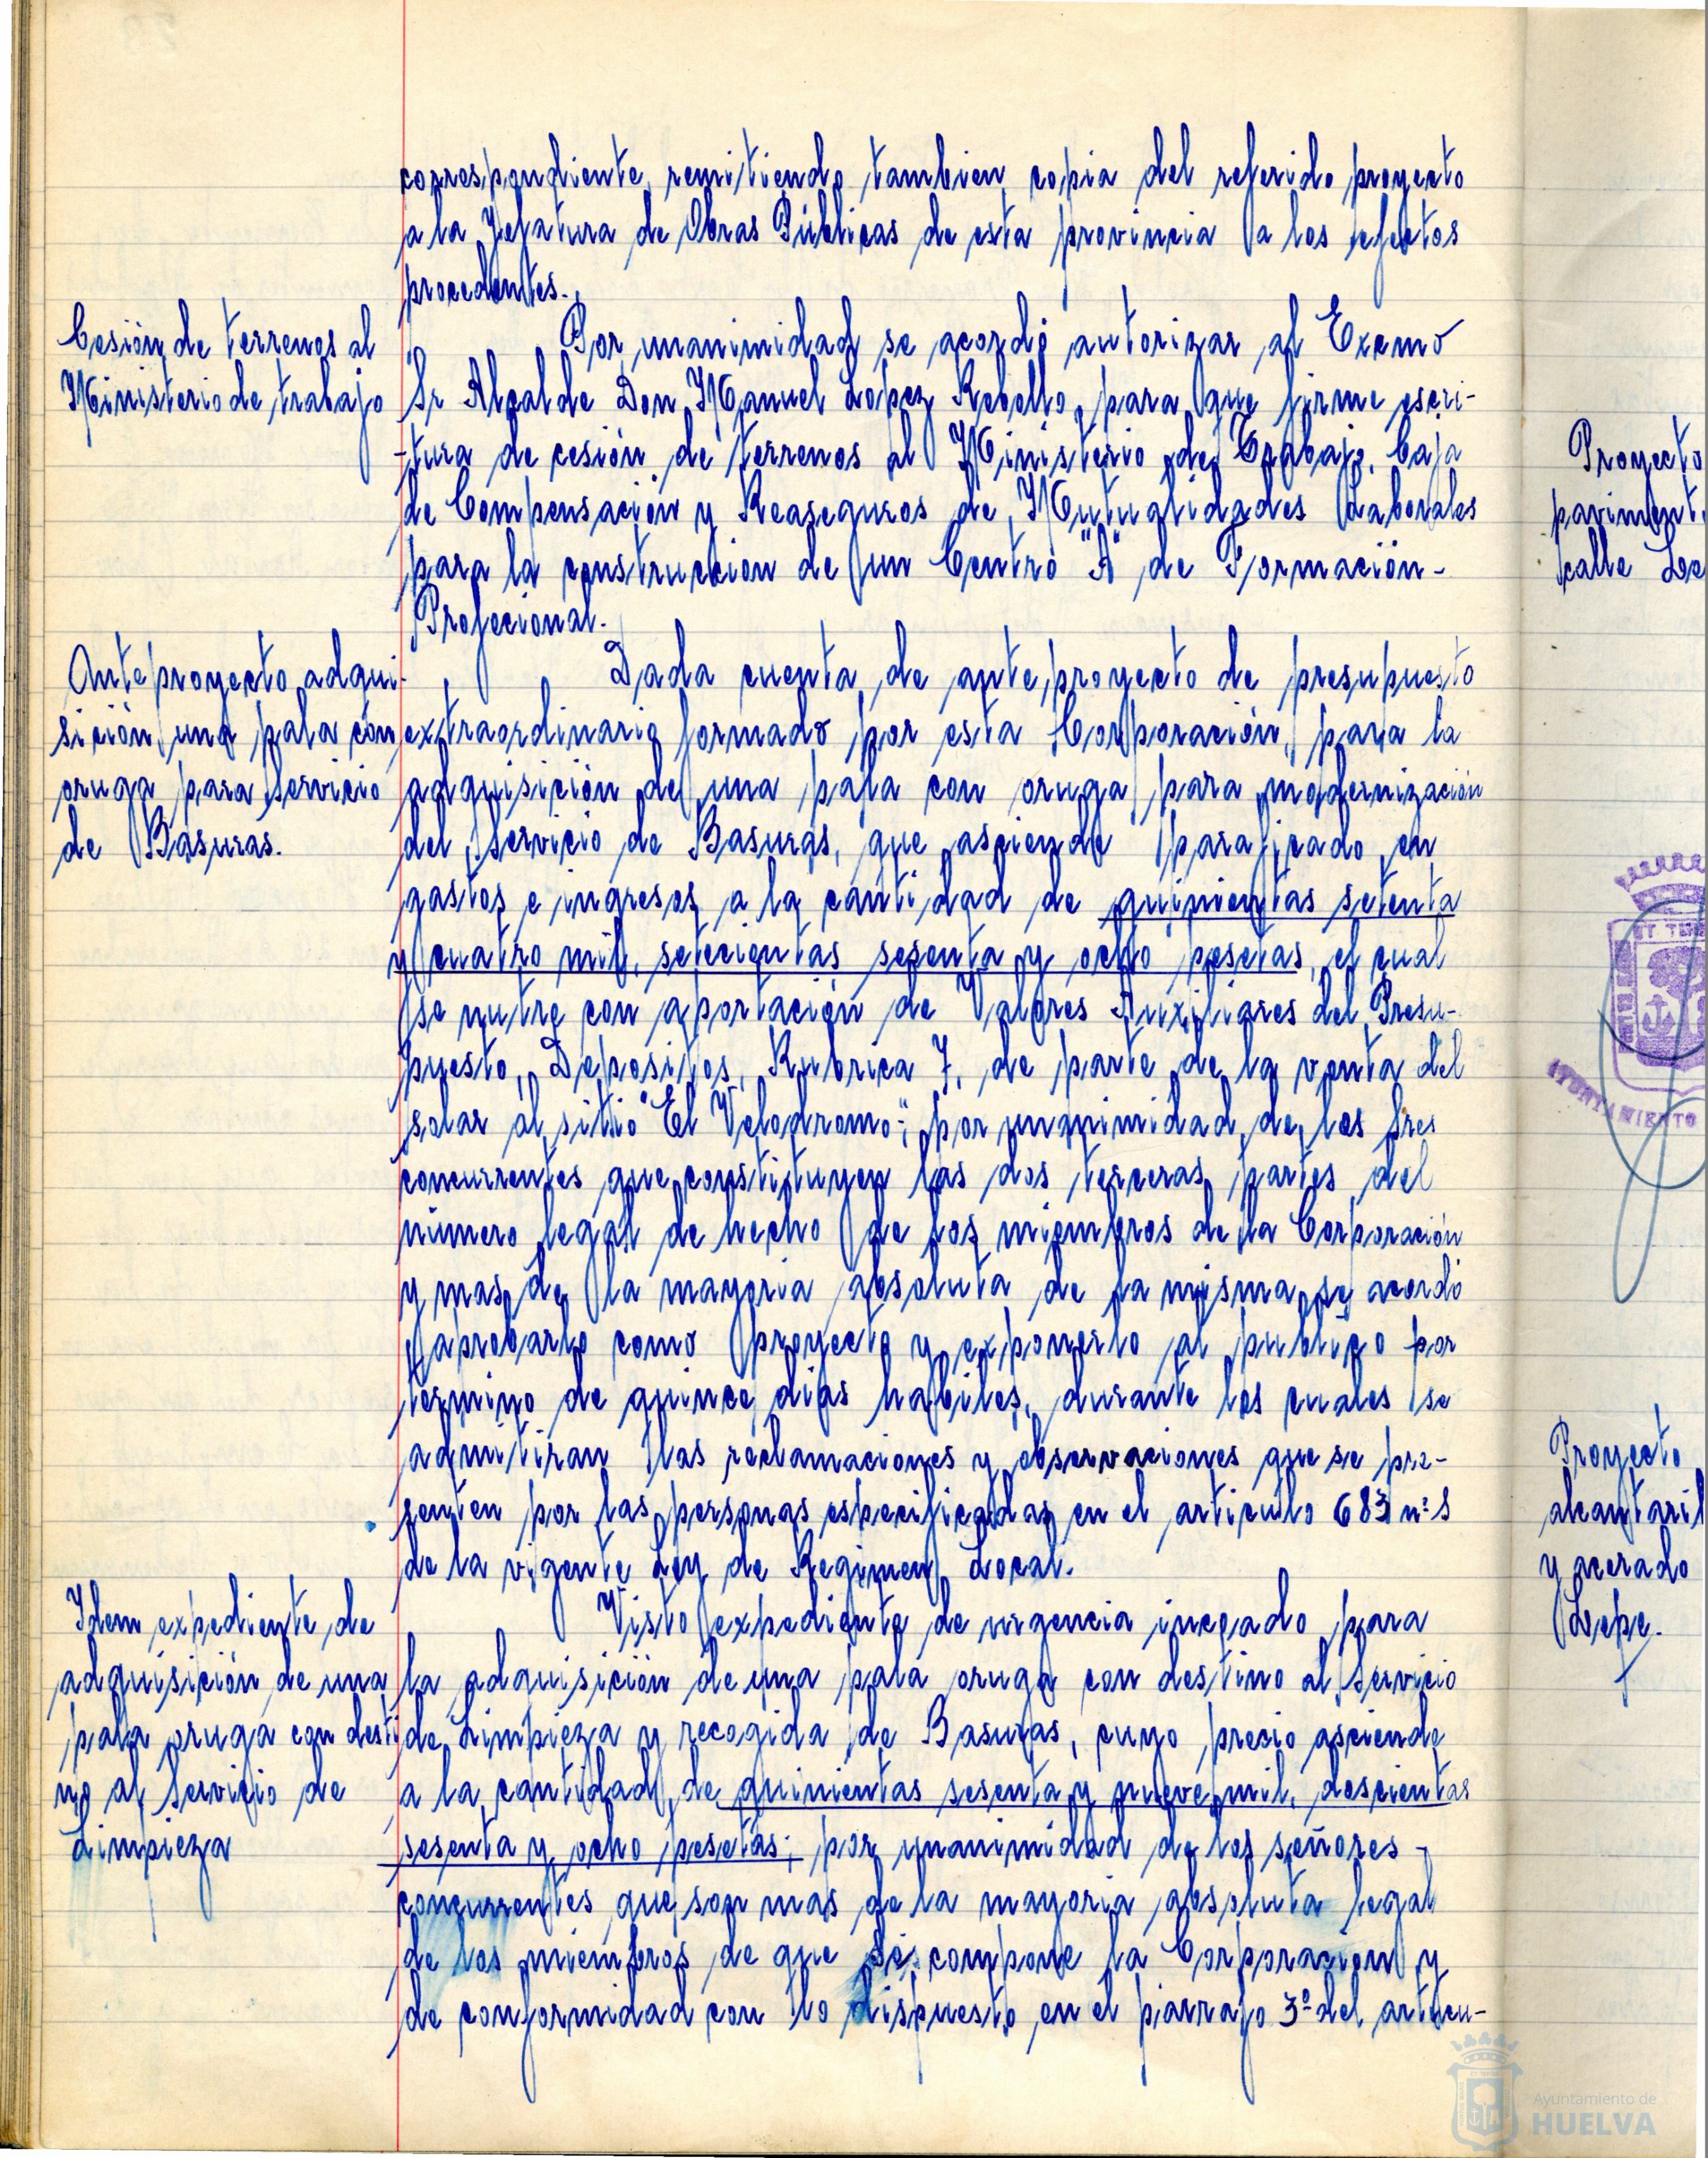 correspondiente, remitiendo tambien copia del referido proyecto
a la Jefatura de Obras Públicas de esta provincia a los efectos
procedentes.-
Cesión de terrenos al
Ministerio de trabajo
Por unanimidad se acordó autorizar al Excmo
Sr Alcalde Don Manuel Lopez Rebollo, para que firme escri-
-tura de cesión de terrenos al Ministerio de Trabajo, Caja
de Compensación y Reaseguros de Mutualidades Laborales
para la construcción de un Centro "A" de Formación-
Profecional.-
Anteproyecto adqui-
sición una pala con
oruga para Servicio
de Basuras.
Dada cuenta de anteproyecto de presupuesto
extraordinario formado por esta Corporación, para la
adquisición de una pala con oruga para modernización
del Servicio de Basuras, que asciende parificado en
gastos e ingresos a la cantidad de quinientas setenta
y cuatro mil, setecientas sesenta y ocho pesetas, el cual
se nutre con aportación de Valores Auxiliares del Presu-
puesto, Depositos, Rubrica 7, de parte de la venta del
solar al sitio "El Velodromo"; por unanimidad de los Sres
concurrentes que constituyen las dos terceras partes del
número legal de hecho de los miembros de la Corporación
y mas de la mayoria absoluta de la misma se acordó
aprobarlo como proyecto y exponerlo al publico por
termino de quince dias habiles, durante los cuales se
admitiran las reclamaciones y observaciones que se pre-
senten por las personas especificadas en el articulo 683 nº 1
de la vigente Ley de Regimen Local.
Idem expediente de
adquisición de una
pala oruga con desti
no al Servicio de
Limpieza
Visto expediente de urgencia incoado para
la adquisición de una pala oruga con destino al Servicio
de Limpieza y recogida de Basuras, cuyo precio asciende
a la cantidad de quinientas sesenta y nueve mil, doscientas
sesenta y ocho pesetas; por unanimidad de los señores -
concurrentes que son mas de la mayoria absoluta legal
de los miembros de que se compone la Corporación y
de conformidad con lo dispuesto en el parrafo 3º del articu-
Proyecto
paviment.
calle
ET TERR
AYUNTAMIENTO
Proyecto
alcantaril
y acerado
Lepe.
Ayuntamiento de
HUELVA